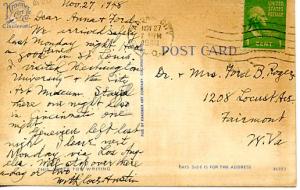 Nov. 27, 1948
Dear Anna & Ford,
We arrived safely
last Monday night. Had
a good time in St. Louis.
Visited Washington
University & the City
Art Museum. Stayed
there one night also
in Cincinnati one
night.
Genevieve left last
night. I leave next
Monday via Los Angeles.
Will stop over there
a day or two.
with love Austin
NOV 27
PM
UNITED STATES POSTAGE
1 CENT 1
POST CARD
Dr. & Mrs. Ford B. Rogers
1208 Locust Ave.
Fairmont
W. Va
FOR WRITING
THIS SIDE IS FOR THE ADDRESS